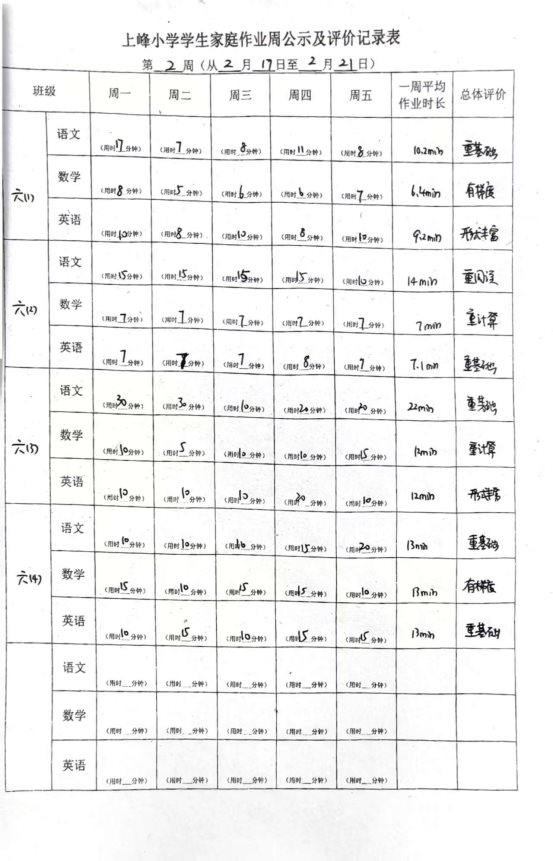 上峰小学学生家庭作业周公示及评价记录表
第 2 周（从 2 月 17 日至 2 月 21 日）
班级 周一 周二 周三 周四 周五 一周平均作业时长 总体评价
六(1) 语文 （用时17分钟） （用时7分钟） （用时8分钟） （用时11分钟） （用时8分钟） 10.2min 重基础
数学 （用时8分钟） （用时5分钟） （用时6分钟） （用时6分钟） （用时7分钟） 6.4min 有梯度
英语 （用时10分钟） （用时8分钟） （用时10分钟） （用时8分钟） （用时10分钟） 9.2min 形式丰富
六(2) 语文 （用时15分钟） （用时15分钟） （用时15分钟） （用时15分钟） （用时10分钟） 14min 重阅读
数学 （用时7分钟） （用时7分钟） （用时7分钟） （用时7分钟） （用时7分钟） 7min 重计算
英语 （用时7分钟） （用时7分钟） （用时7分钟） （用时8分钟） （用时7分钟） 7.1min 重基础
六(3) 语文 （用时30分钟） （用时30分钟） （用时10分钟） （用时20分钟） （用时20分钟） 22min 重基础
数学 （用时10分钟） （用时5分钟） （用时10分钟） （用时10分钟） （用时15分钟） 12min 重计算
英语 （用时10分钟） （用时10分钟） （用时10分钟） （用时20分钟） （用时10分钟） 12min 形式丰富
六(4) 语文 （用时10分钟） （用时10分钟） （用时10分钟） （用时15分钟） （用时20分钟） 13min 重基础
数学 （用时15分钟） （用时10分钟） （用时15分钟） （用时15分钟） （用时10分钟） 13min 有梯度
英语 （用时10分钟） （用时15分钟） （用时10分钟） （用时15分钟） （用时15分钟） 13min 重基础
语文 （用时___分钟） （用时___分钟） （用时___分钟） （用时___分钟） （用时___分钟）
数学 （用时___分钟） （用时___分钟） （用时___分钟） （用时___分钟） （用时___分钟）
英语 （用时___分钟） （用时___分钟） （用时___分钟） （用时___分钟） （用时___分钟）